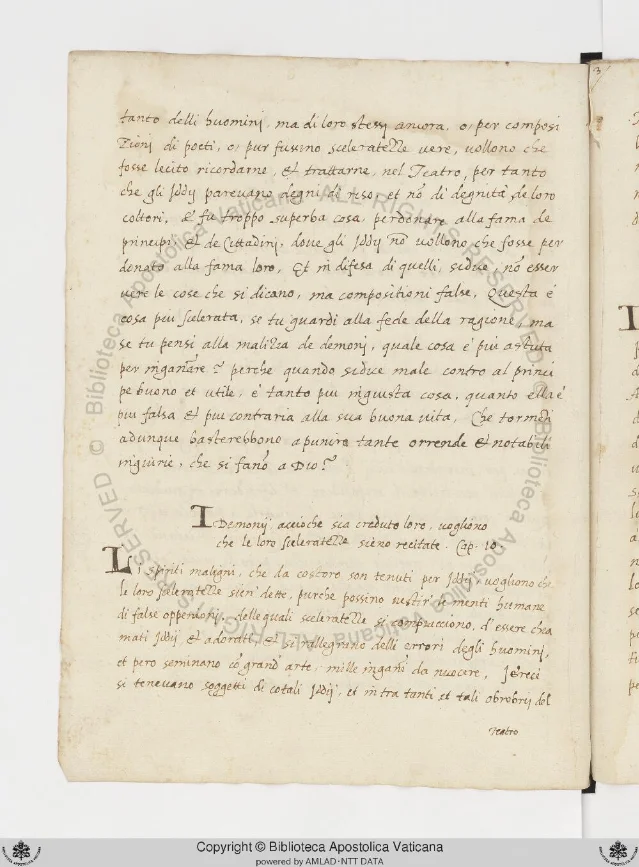 tanto delli huominj, ma di loro stessi ancora, o, per composi
zionj di poeti, o, pur fussino sceleratezze vere, vollono che
fosse lecito ricordarne, et trattarne, nel Teatro, per tanto
che gli Iddij parevano degni di riso, et nõ di degnità de loro
coltori, è fu troppo superba cosa, perdonare alla fama de
principi, et de Cittadinj, dove gli Iddij nõ vollono che fosse per
donato alla fama loro, Et in difesa di quelli, si dice, nõ esser
vere le cose che si dicano, ma compositioni false, Questa é
cosa piu scelerata, se tu guardi alla fede della ragione, ma
se tu pensi alla malizia de demonj, quale cosa é più astuta
per ingañare? perche quando si dice male contro al princi
pe buono et utile, é tanto piu ingiusta cosa, quanto ella é
piu falsa et piu contraria alla sua buona vita, Che tormenti
adunque basterebbono a punire tante orrende et notabili
ingiurie, che si fanõ a Dio?
I Demonij accioche sia creduto loro, vogliono
che le loro sceleratezze sieno recitate. Cap. 10.
Li spiriti maligni, che da costoro son tenuti per Iddij, vogliono che
le loro sceleratezze sien dette, purche possino vestir le menti humane
di false oppenionj, delle quali sceleratezze si compiacciono, d'essere chia
mati Iddij et adorati, et si rallegrano delli errori degli huominj,
et pero seminano cõ grand' arte, mille ingañi da nuocere, I Greci
si tenevano soggetti di cotali Iddij, et intra tanti et tali obrobrij del
Teatro
Copyright © Biblioteca Apostolica Vaticana
powered by AMLAD-NTT DATA